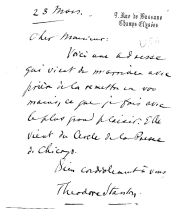 23 Mars.
9, Rue de Bassano
Champs Elysées
Cher Monsieur:
Voici une adresse
qui vient de m'arriver avec
prière de la remettre en vos
mains, ce que je fais avec
le plus grand plaisir. Elle
vient du Cercle de la Presse
de Chicago.
Bien cordialement à vous
Theodore Stanton.